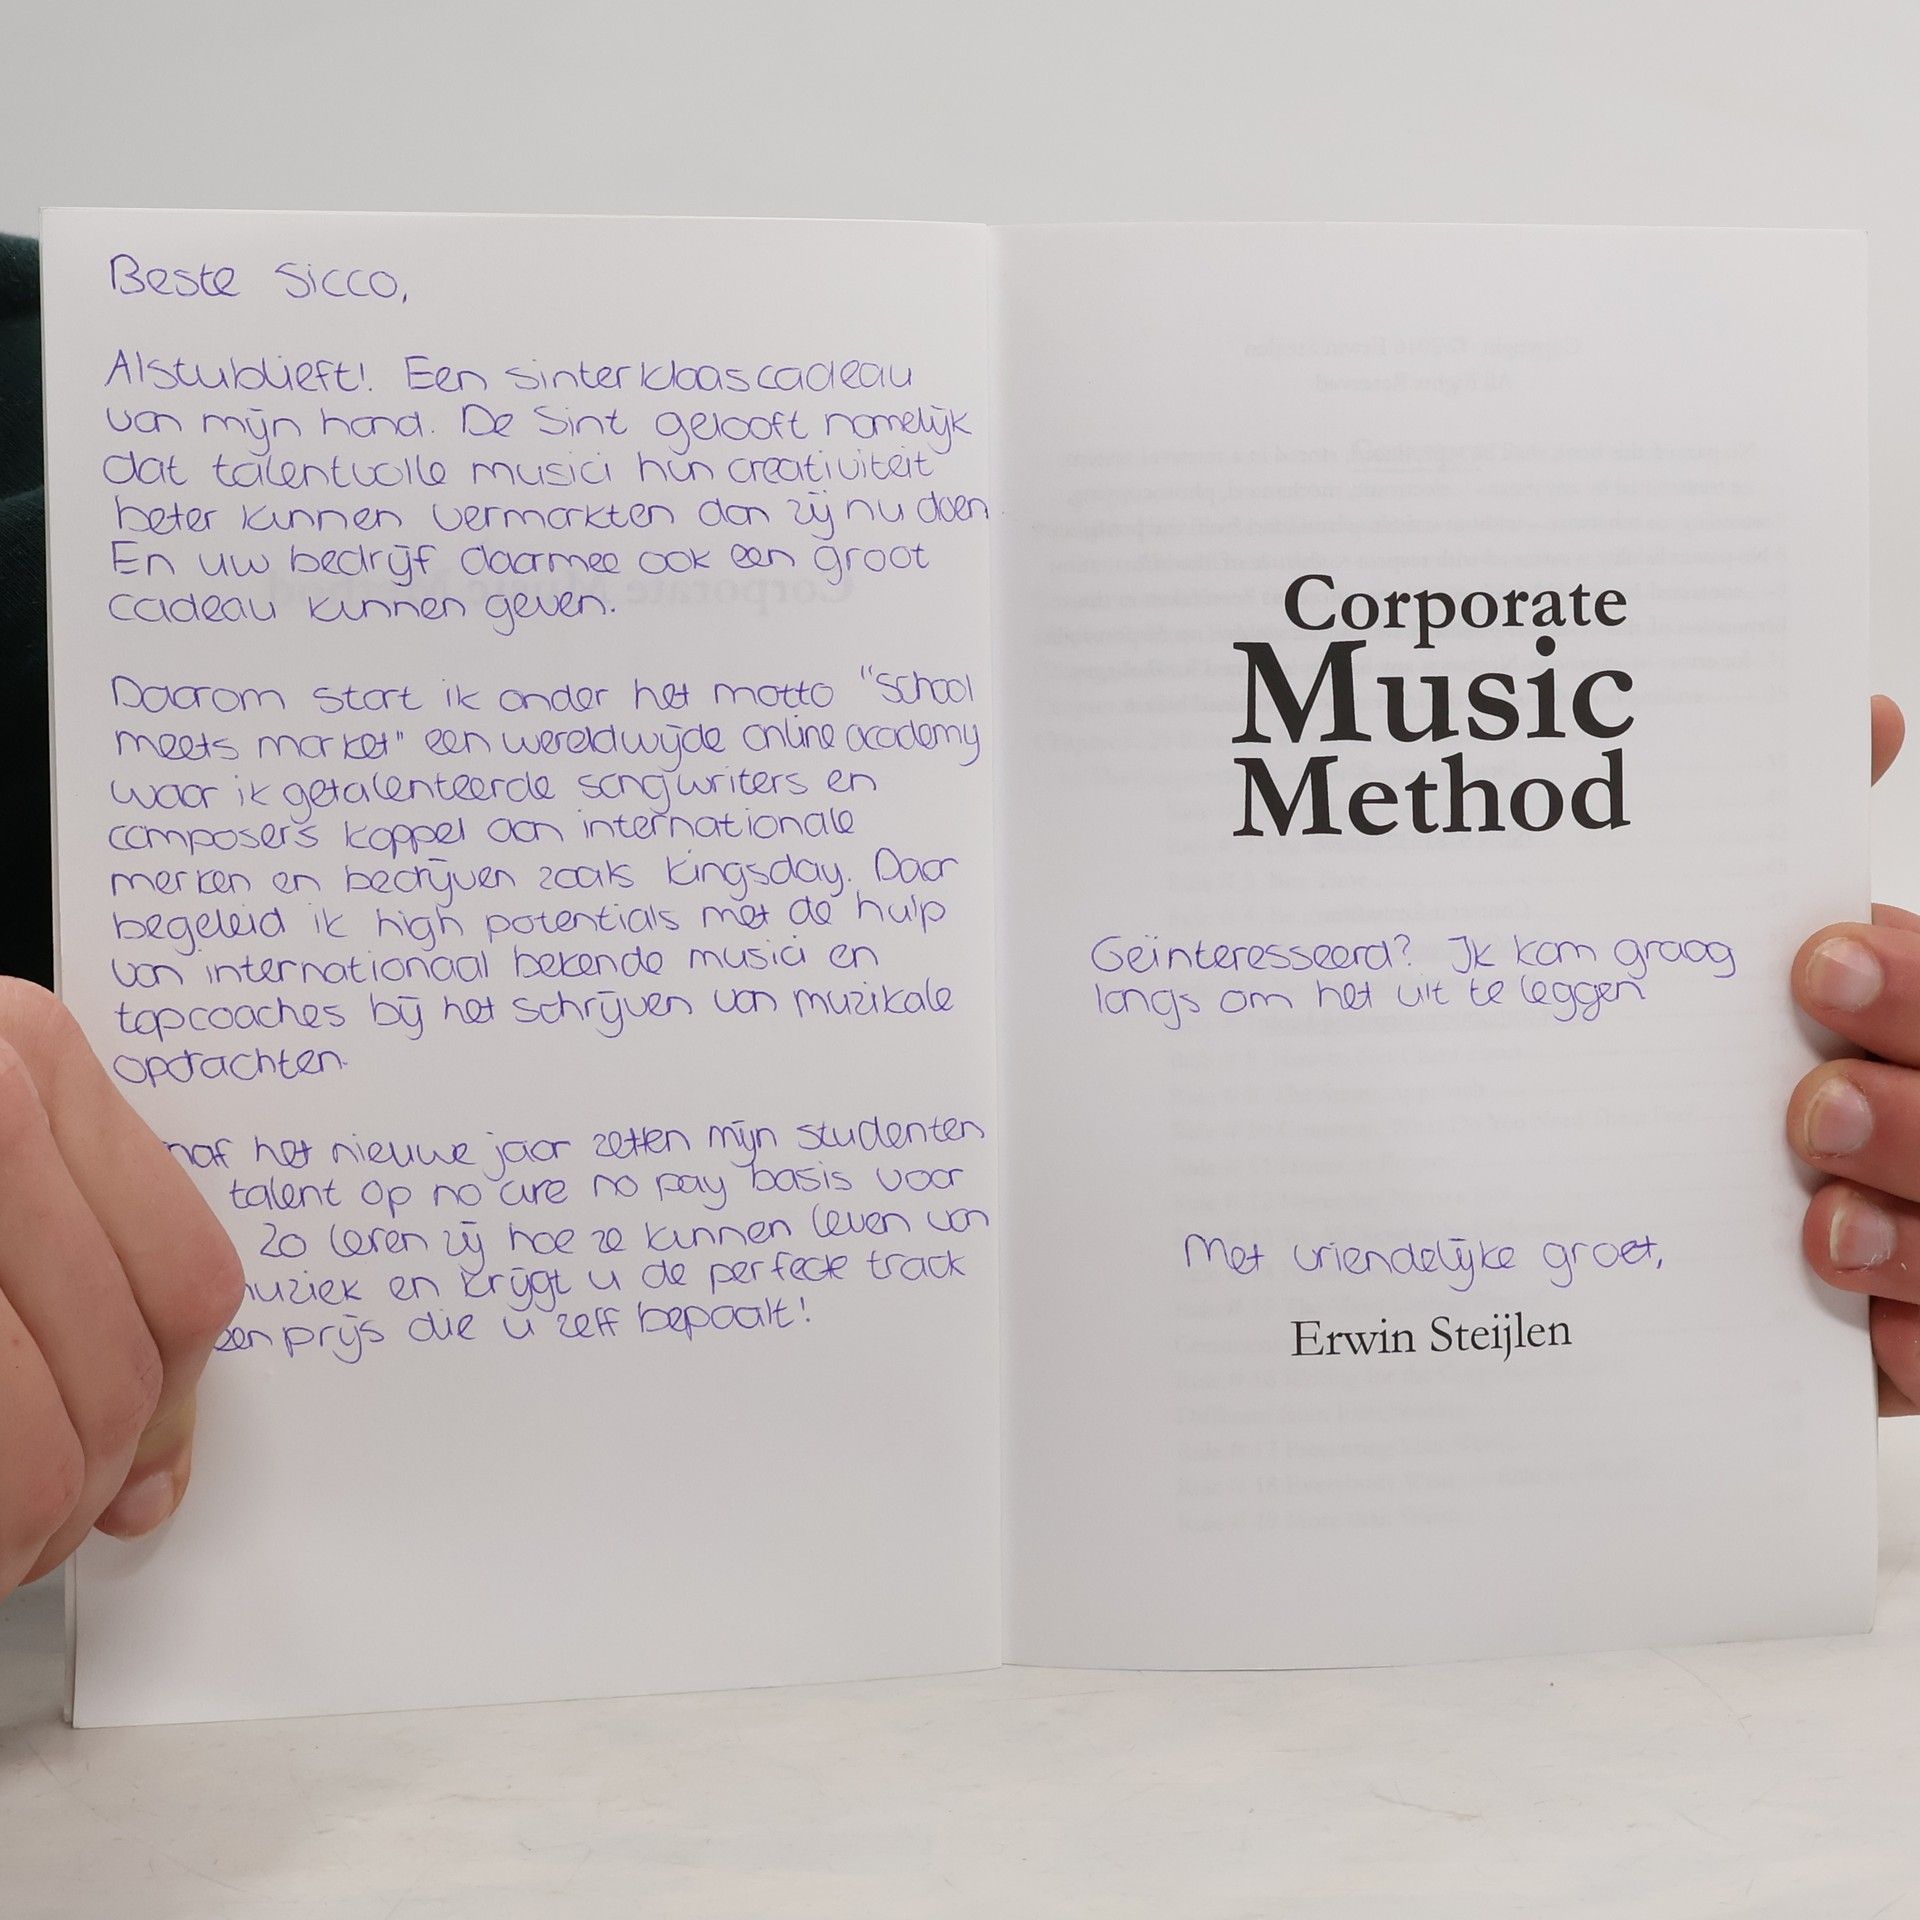 Beste Sicco,
Alstublieft! Een sinterklaascadeau
van mijn hand. De Sint gelooft namelijk
dat talentvolle musici hun creativiteit
beter kunnen vermarkten dan zij nu doen
En uw bedrijf daarmee ook een groot
cadeau kunnen geven.
Daarom start ik onder het motto "School
meets market" een wereldwijde online academy
waar ik getalenteerde songwriters en
composers koppel aan internationale
merken en bedrijven zoals Kingsday. Daar
begeleid ik high potentials met de hulp
van internationaal bekende musici en
topcoaches bij het schrijven van muzikale
opdrachten.
naf het nieuwe jaar zetten mijn studenten
talent op no cure no pay basis voor
Zo leren zij hoe ze kunnen leven van
muziek en krijgt u de perfecte track
een prijs die u zelf bepaalt!
Corporate
Music
Method
Geïnteresseerd? Ik kom graag
langs om het uit te leggen
Met vriendelijke groet,
Erwin Steijlen